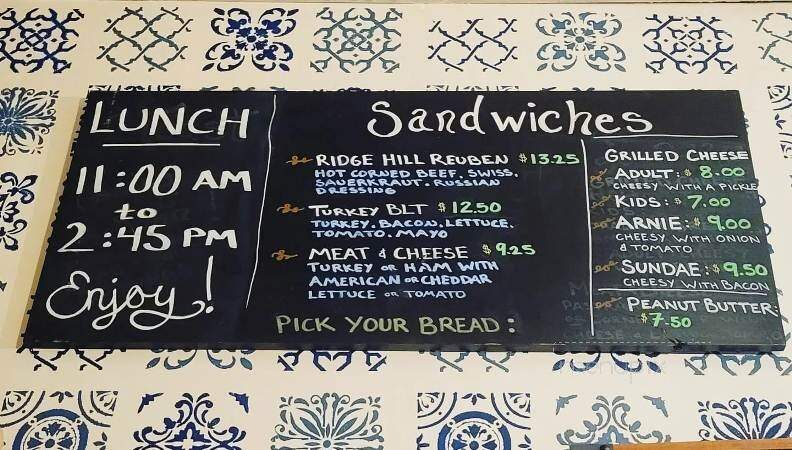 LUNCH
11:00 AM
to
2:45 PM
Enjoy!
Sandwiches
RIDGE HILL REUBEN $13.25
HOT CORNED BEEF, SWISS,
SAUERKRAUT, RUSSIAN
DRESSING
TURKEY BLT $12.50
TURKEY, BACON, LETTUCE,
TOMATO, MAYO
MEAT & CHEESE $9.25
TURKEY or HAM WITH
AMERICAN or CHEDDAR
LETTUCE or TOMATO
PICK YOUR BREAD:
GRILLED CHEESE
ADULT: $8.00
CHEESY WITH A PICKLE
KIDS: $7.00
ARNIE: $9.00
CHEESY WITH ONION
& TOMATO
SUNDAE: $9.50
CHEESY WITH BACON
PEANUT BUTTER:
$7.50